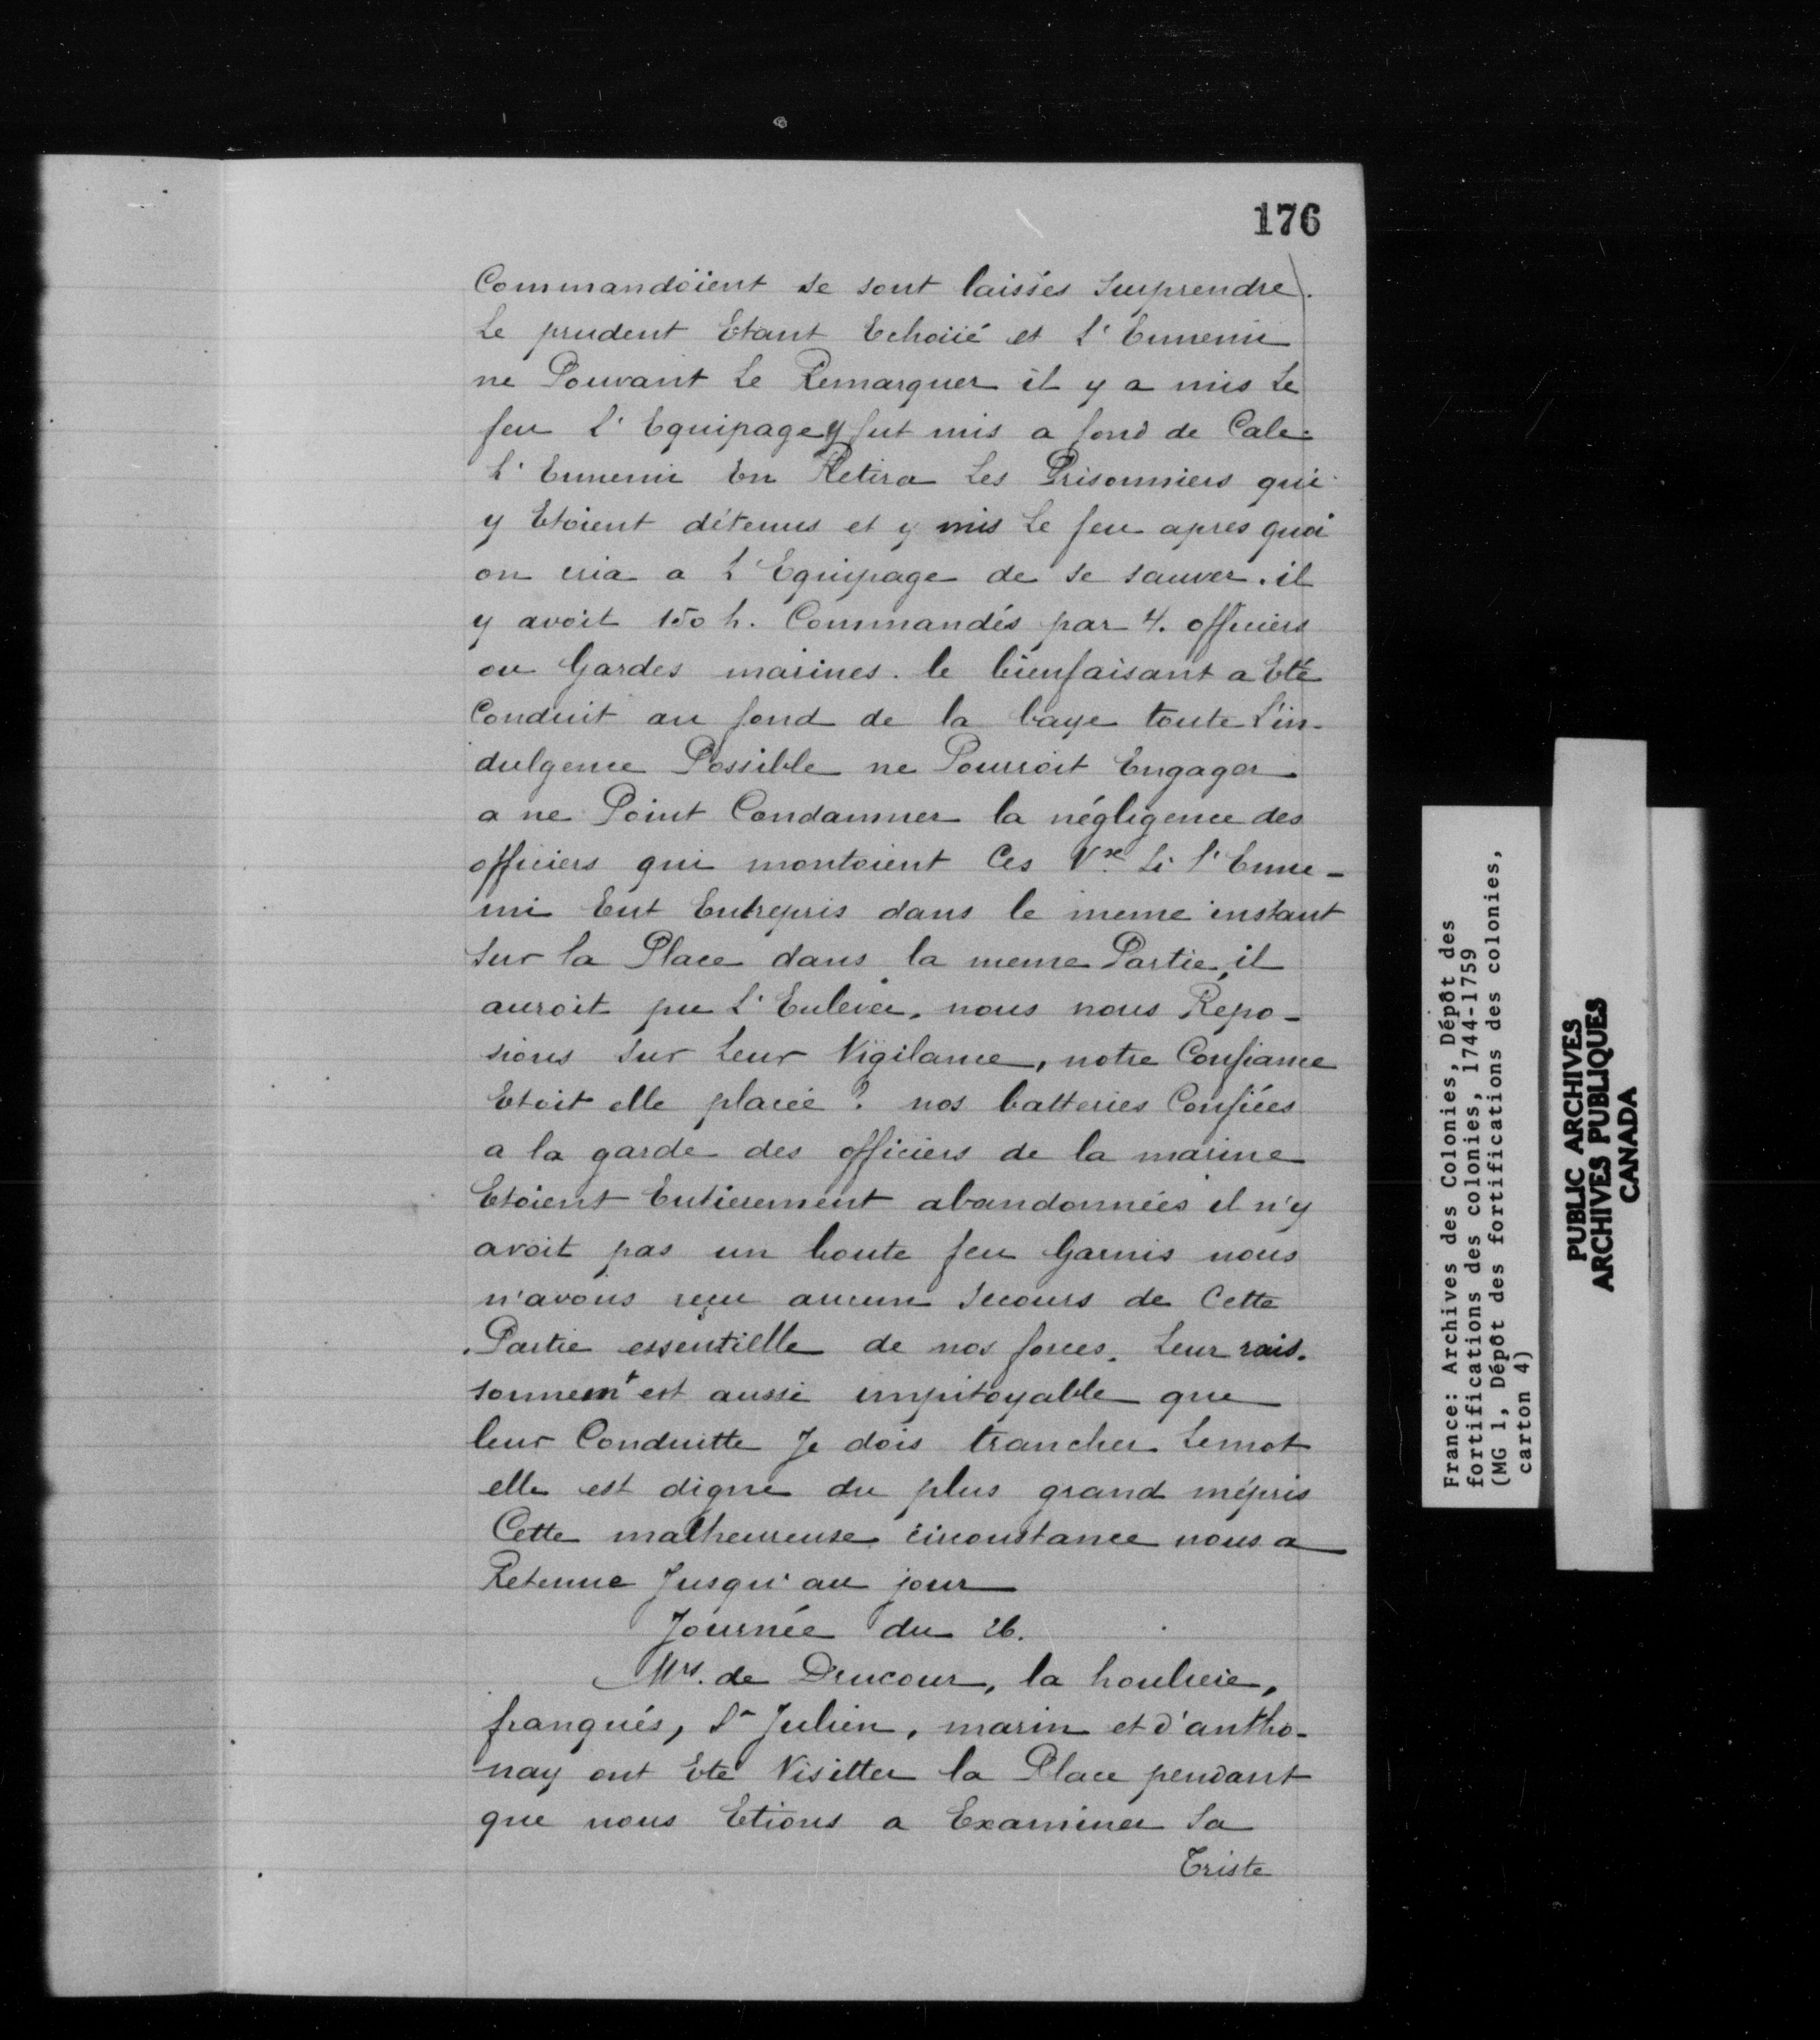 176
Commandoient se sont laissés surprendre.
Le prudent Etant Echoüé et L'Ennemi
ne Pouvant Le Remarquer il y a mis Le
feu L'Equipage y fut mis a fond de Cale.
L'Ennemi En Retira Les Prisonniers qui
y Etoient détenus et y mis Le feu apres quoi
on cria a L'Equipage de se sauver. il
y avoit 150 h. Commandés par 4. officiers
ou Gardes marines. le bienfaisant a Eté
Conduit au fond de la baye toute L'in-
dulgence Possible ne Pourroit Engager
a ne Point Condamner la négligence des
officiers qui montoient Ces Vx. Si l'Enne-
mi Eut Entrepris dans le meme instant
sur la Place dans la meme Partie, il
auroit pu L'Enlever, nous nous Repo-
sions sur Leur Vigilance, notre Confiance
Etoit elle placée ? nos batteries Confiées
a la garde des officiers de la marine
Etoient Entierement abandonnées il n'y
avoit pas un boute feu Garnis nous
n'avons reçu aucun Secours de Cette
Partie essentielle de nos forces. Leur rais-
sonnemt est aussi impitoyable que
leur Conduitte Je dois trancher Lemot
elle est digne du plus grand mépris
Cette malheureuse circonstance nous a
Retenue Jusqu'au jour
Journée du 26.
Mrs. de Drucour, la houlieie,
franqués, St Julien, marin et d'antho-
nay ont Eté Visitter la Place pendant
que nous Etions a Examiner Sa
Triste
France: Archives des Colonies, Dépôt des
fortifications des colonies, 1744-1759
(MG 1, Dépôt des fortifications des colonies,
carton 4)
PUBLIC ARCHIVES
ARCHIVES PUBLIQUES
CANADA